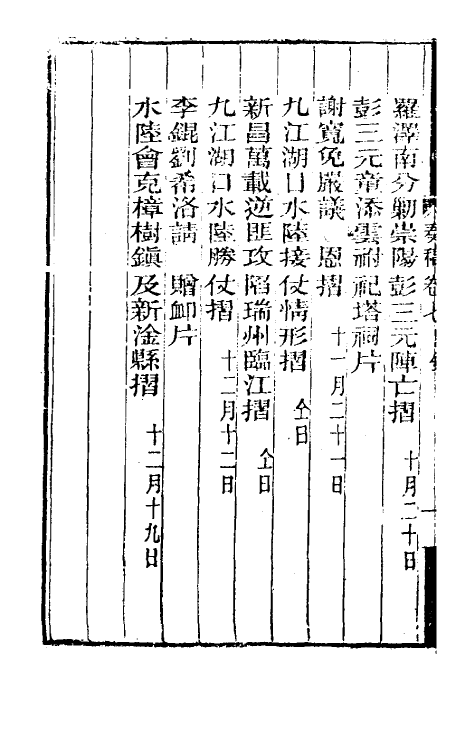 奏稿卷七目錄
羅澤南分勦崇陽彭三元陣亡摺 十月二十日
彭三元童添雲祔祀塔祠片
謝寬免嚴議 恩摺 十一月二十一日
九江湖口水陸接仗情形摺 仝日
新昌萬載逆匪攻陷瑞州臨江摺 仝日
九江湖口水陸勝仗摺 十二月十二日
李錕劉希洛請 贈卹片
水陸會克樟樹鎮及新淦縣摺 十二月十九日